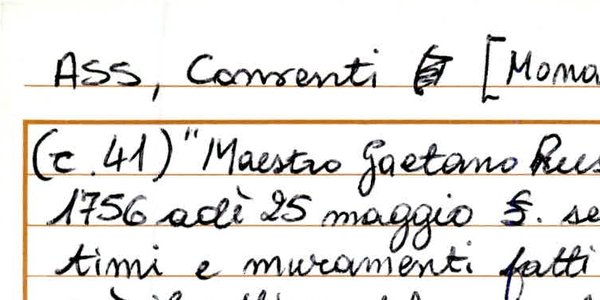 ASS, Conventi [Mona
(c. 41) "Maestro Gaetano Rus
1756 adì 25 maggio £. se
timi e muramenti fatti